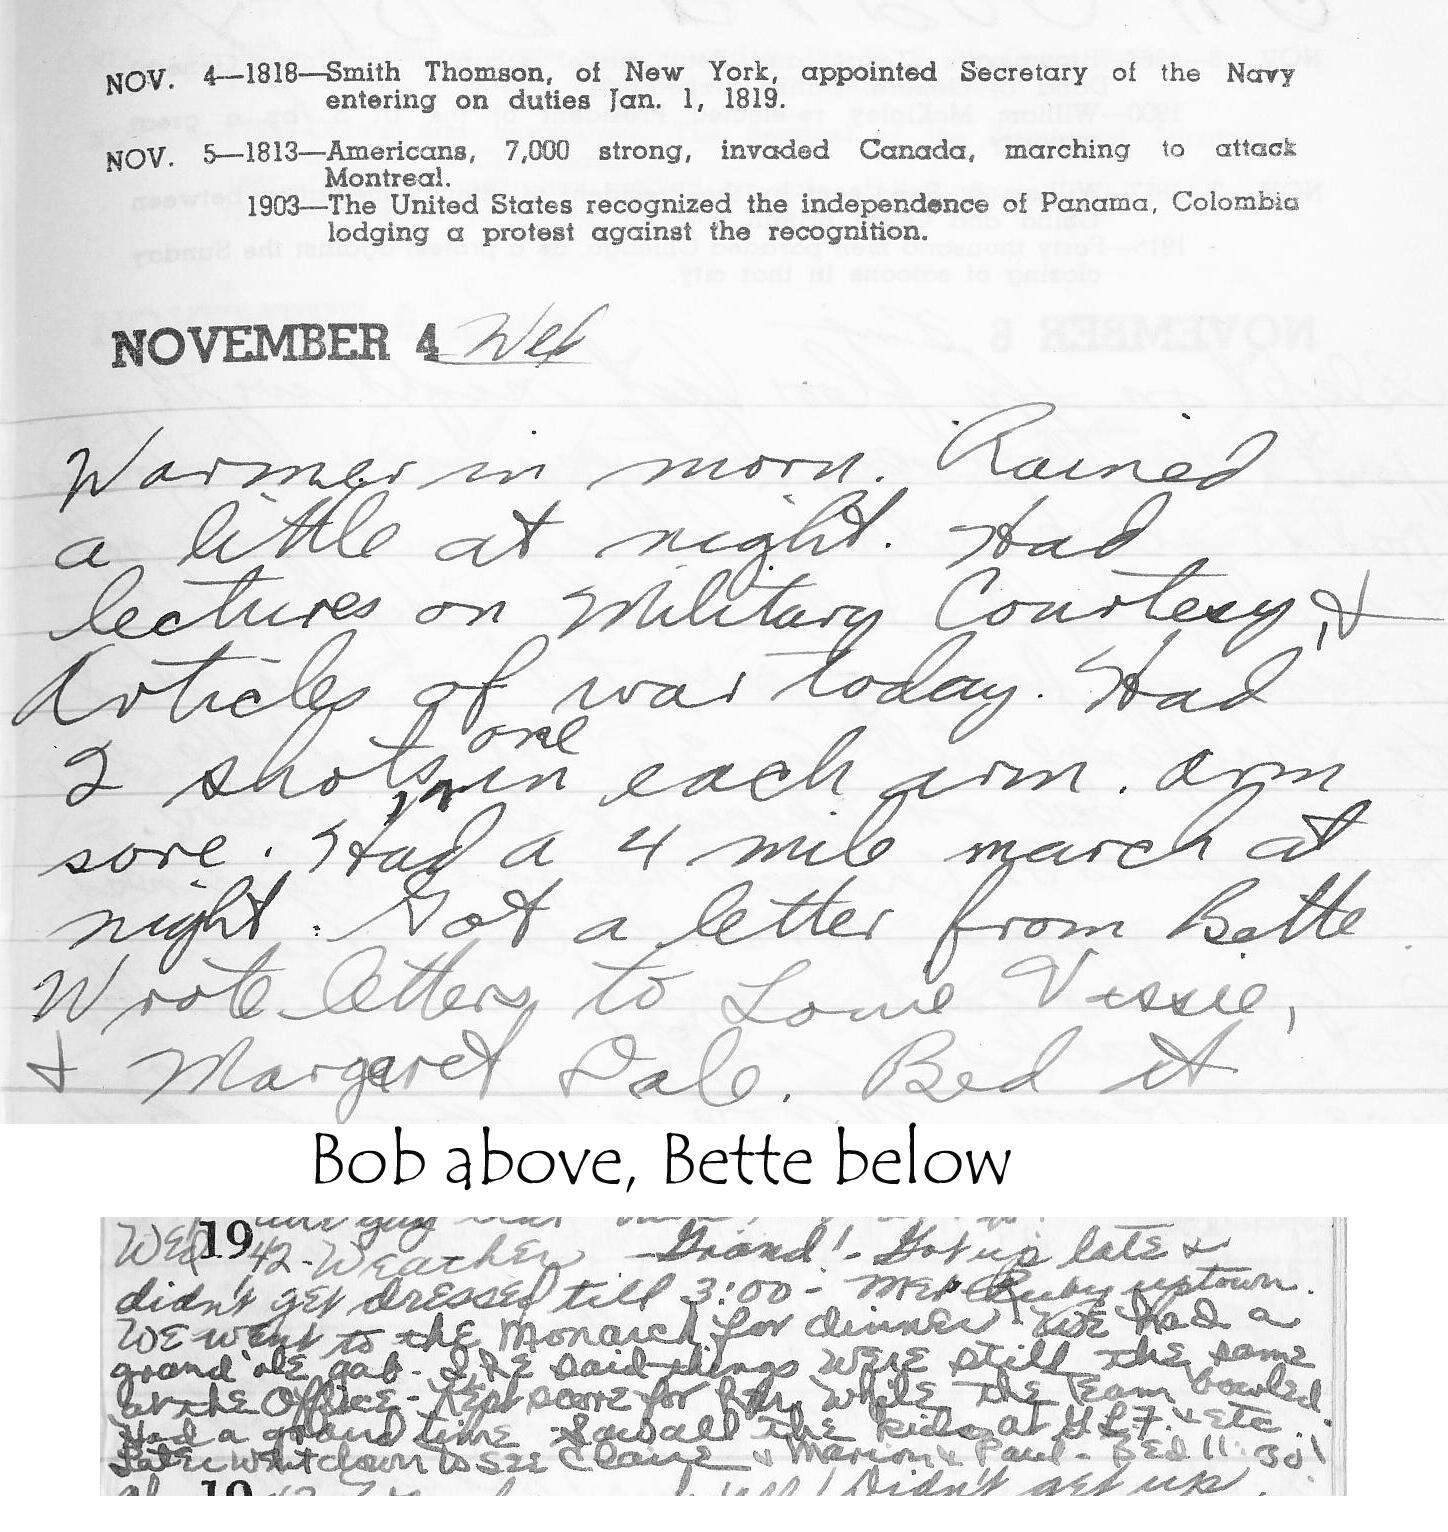 NOV. 4—1818—Smith Thomson, of New York, appointed Secretary of the Navy
entering on duties Jan. 1, 1819.
NOV. 5—1813—Americans, 7,000 strong, invaded Canada, marching to attack
Montreal.
1903—The United States recognized the independence of Panama, Colombia
lodging a protest against the recognition.
NOVEMBER 4 Wed
Warmer in morn. Rained
a little at night. Had
lectures on Military Courtesy, &
Articles of war today. Had
2 shots, one in each arm. Arm
sore. Had a 4 mile march at
night. Got a letter from Bette.
Wrote letters to Vessie,
& Margaret Dale. Bed at
Bob above, Bette below
Wed 1942 - Weather - Grand! - Got up late &
didn't get dressed till 3:00 - Met Ruby uptown.
We went to the Monarch for dinner. We had a
grand ole gab. She said things were still the same
at the Office - Kept score for while the Team bowled.
Had a grand time. Saw all the kids at G.L.F. & etc.
Later went down to see Claire & Marion & Paul - Bed 11:30!
19
Didn't get up